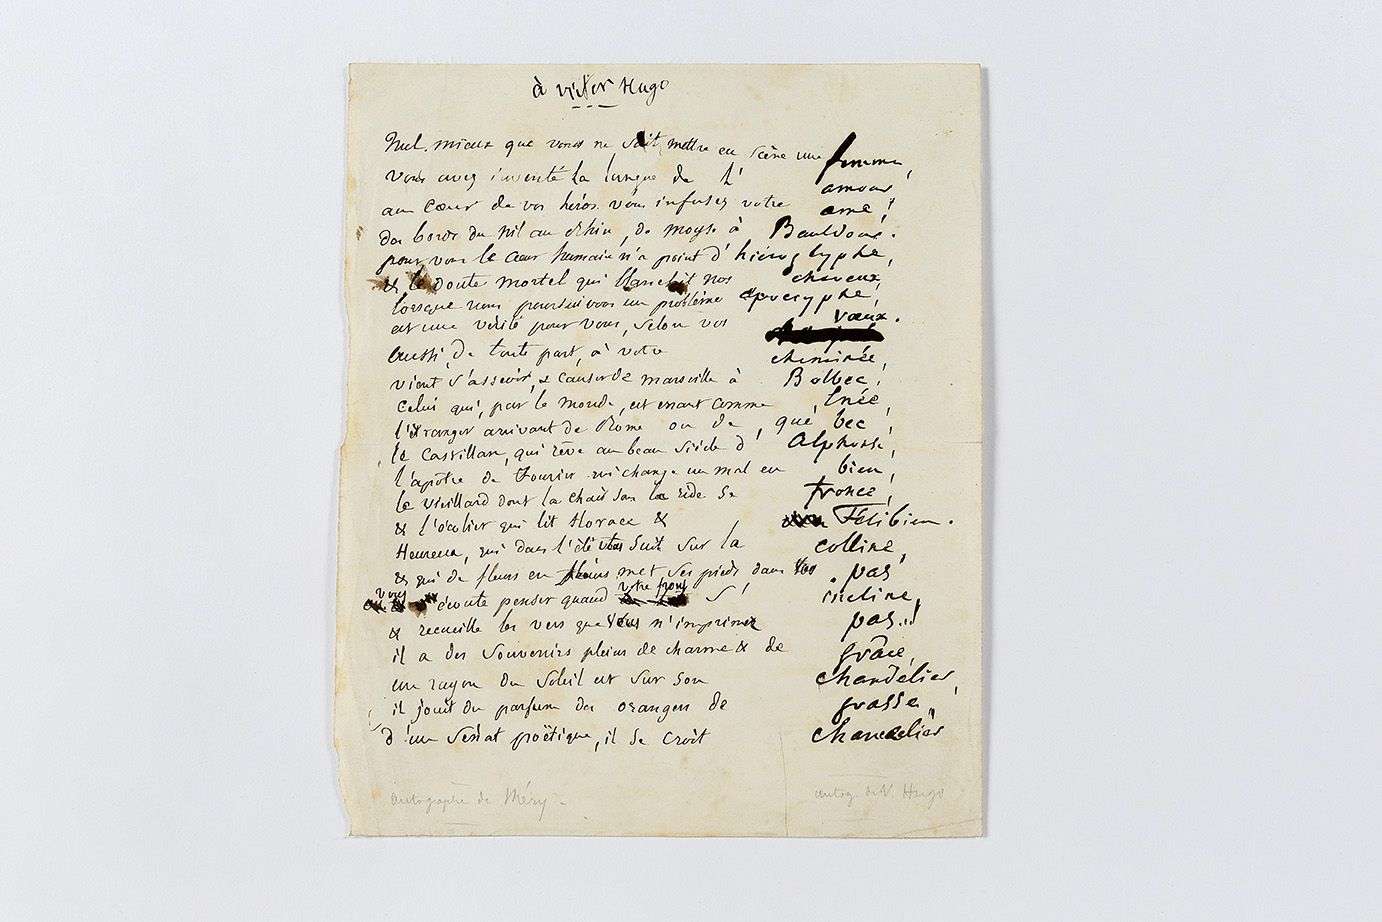 à Victor Hugo
Nul mieux que vous ne sait mettre en scène une femme,
vous avez inventé la langue de l'amour
au cœur de vos héros vous infusez votre ame!
des bords du Nil au Rhin, de Moyse à Baudour.
pour vous le cœur humain n'a point d'hiéroglyphe,
& le doute mortel qui blanchit nos cheveux,
lorsque nous poursuivons un problème apocryphe,
est une vérité pour vous, selon vos vœux.
Aussi, de toute part, à votre cheminée,
vient s'asseoir, & causer de Marseille à Bolbec,
Celui qui, par le monde, est errant comme Enée,
l'étranger arrivant de Rome ou de québec,
le Castillan, qui rêve au beau siècle d'Alphonse,
l'apôtre de Fourier qui change un mal en bien,
le vieillard dont la chair sous la ride se fronce,
& l'écolier qui lit Horace & Félibien.
Heureux, qui dans l'été vous suit sur la colline,
& qui de fleurs en fleurs met ses pieds dans vos pas
vous écoute penser quand votre front s'incline,
& recueille les vers que vous n'imprimez pas!
il a des souvenirs pleins de charme & de grâce,
un rayon du soleil est sur son chandelier,
il jouit du parfum des oranges de grasse,
d'un Sénat poëtique, il se croit chancelier
autographe de Méry -
autog. de V. Hugo